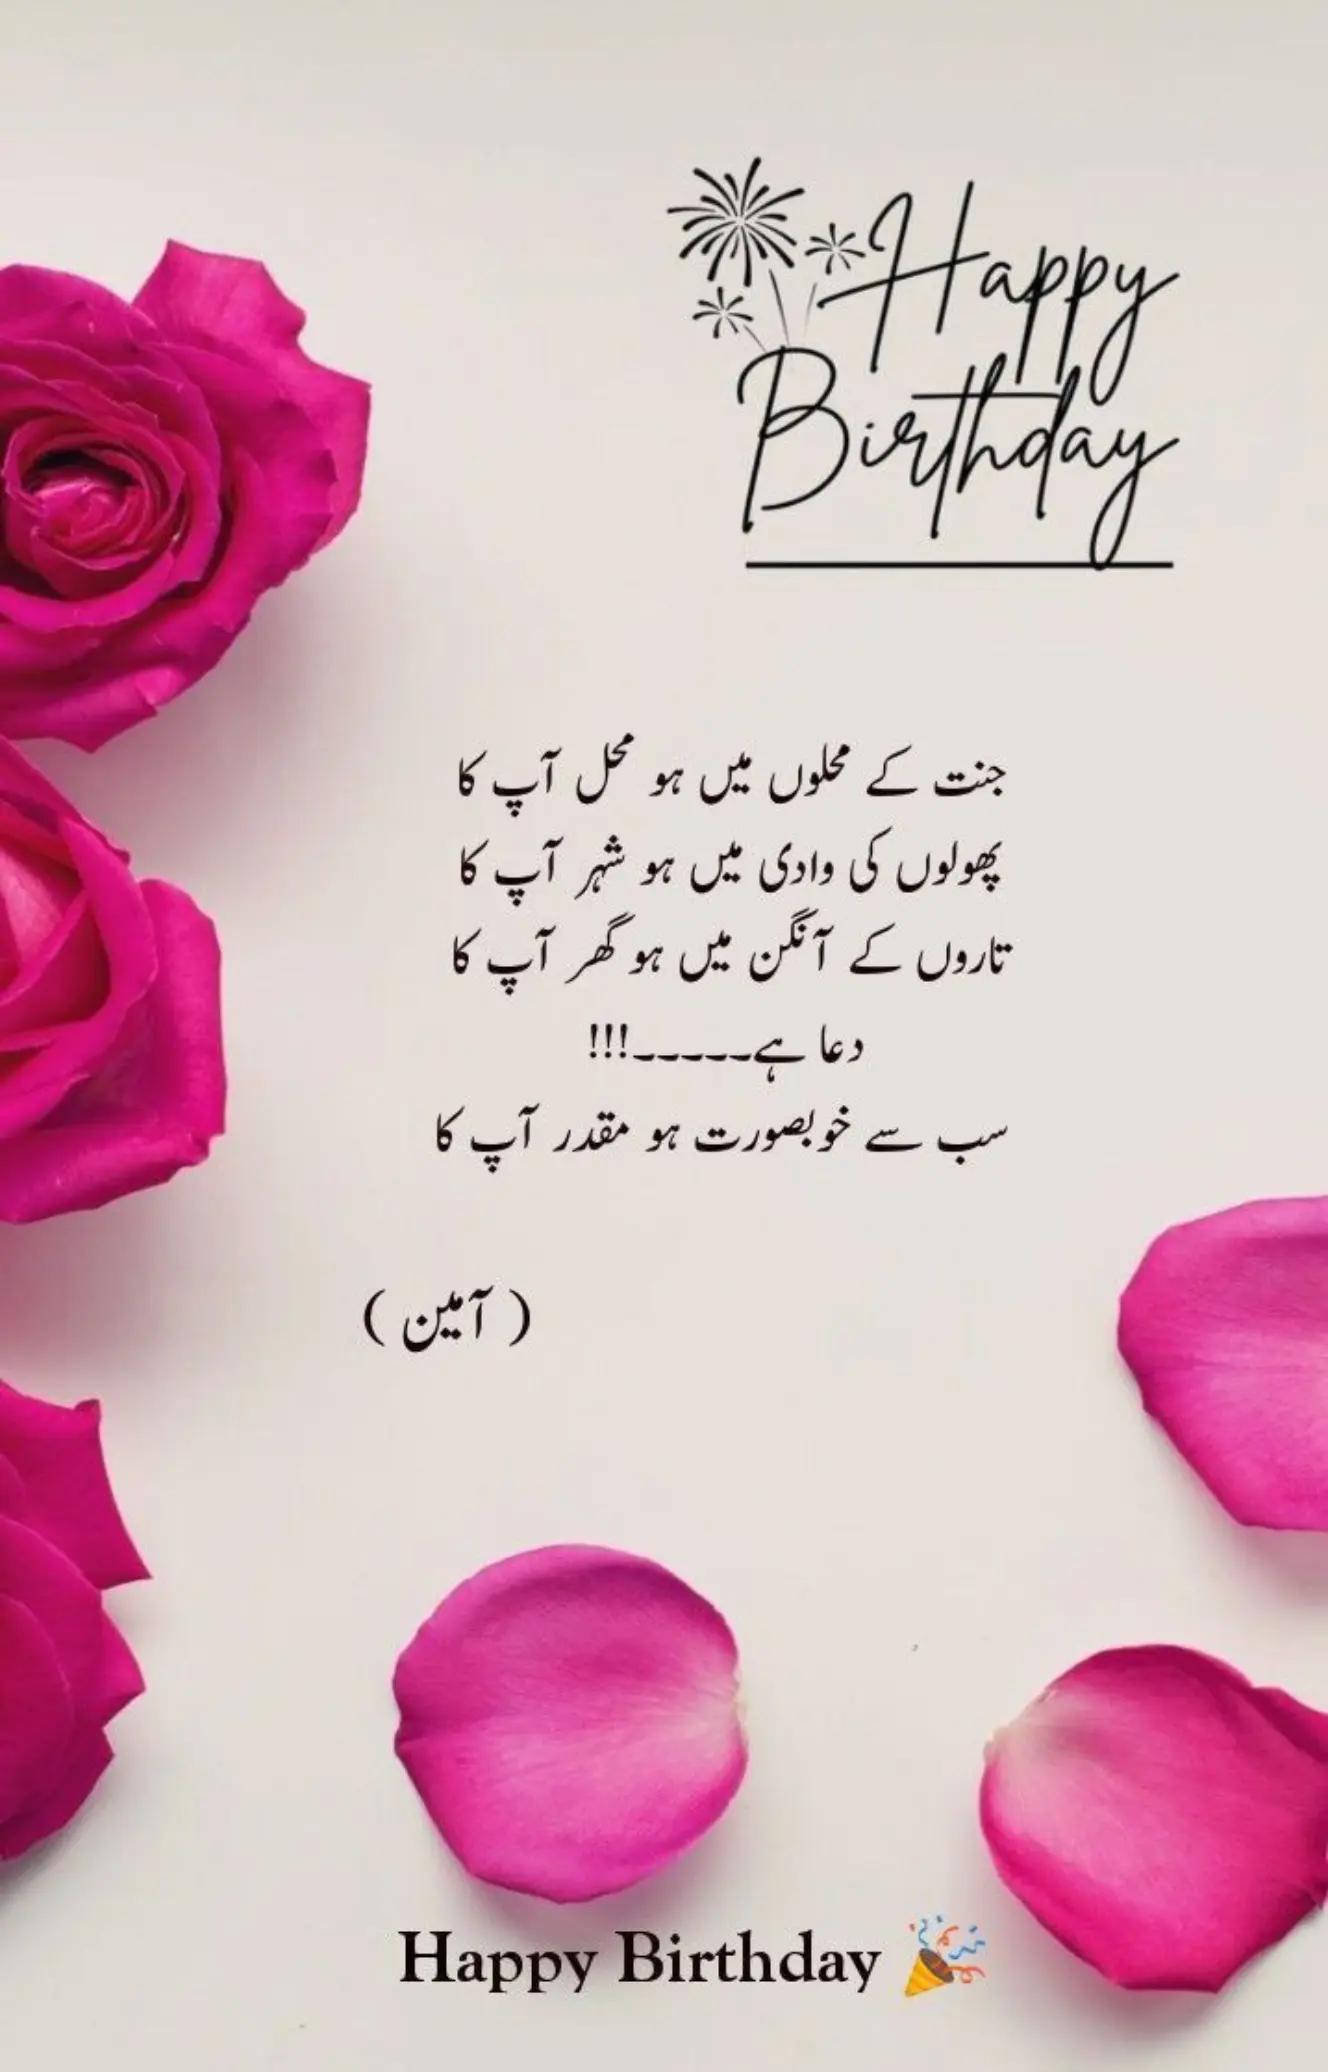 Happy
Birthday
جنت کے محلوں میں ہو محل آپ کا
پھولوں کی وادی میں ہو شہر آپ کا
تاروں کے آنگن میں ہو گھر آپ کا
دعا ہے۔۔۔۔۔!!!
سب سے خوبصورت ہو مقدر آپ کا
( آمین )
Happy Birthday 🎉